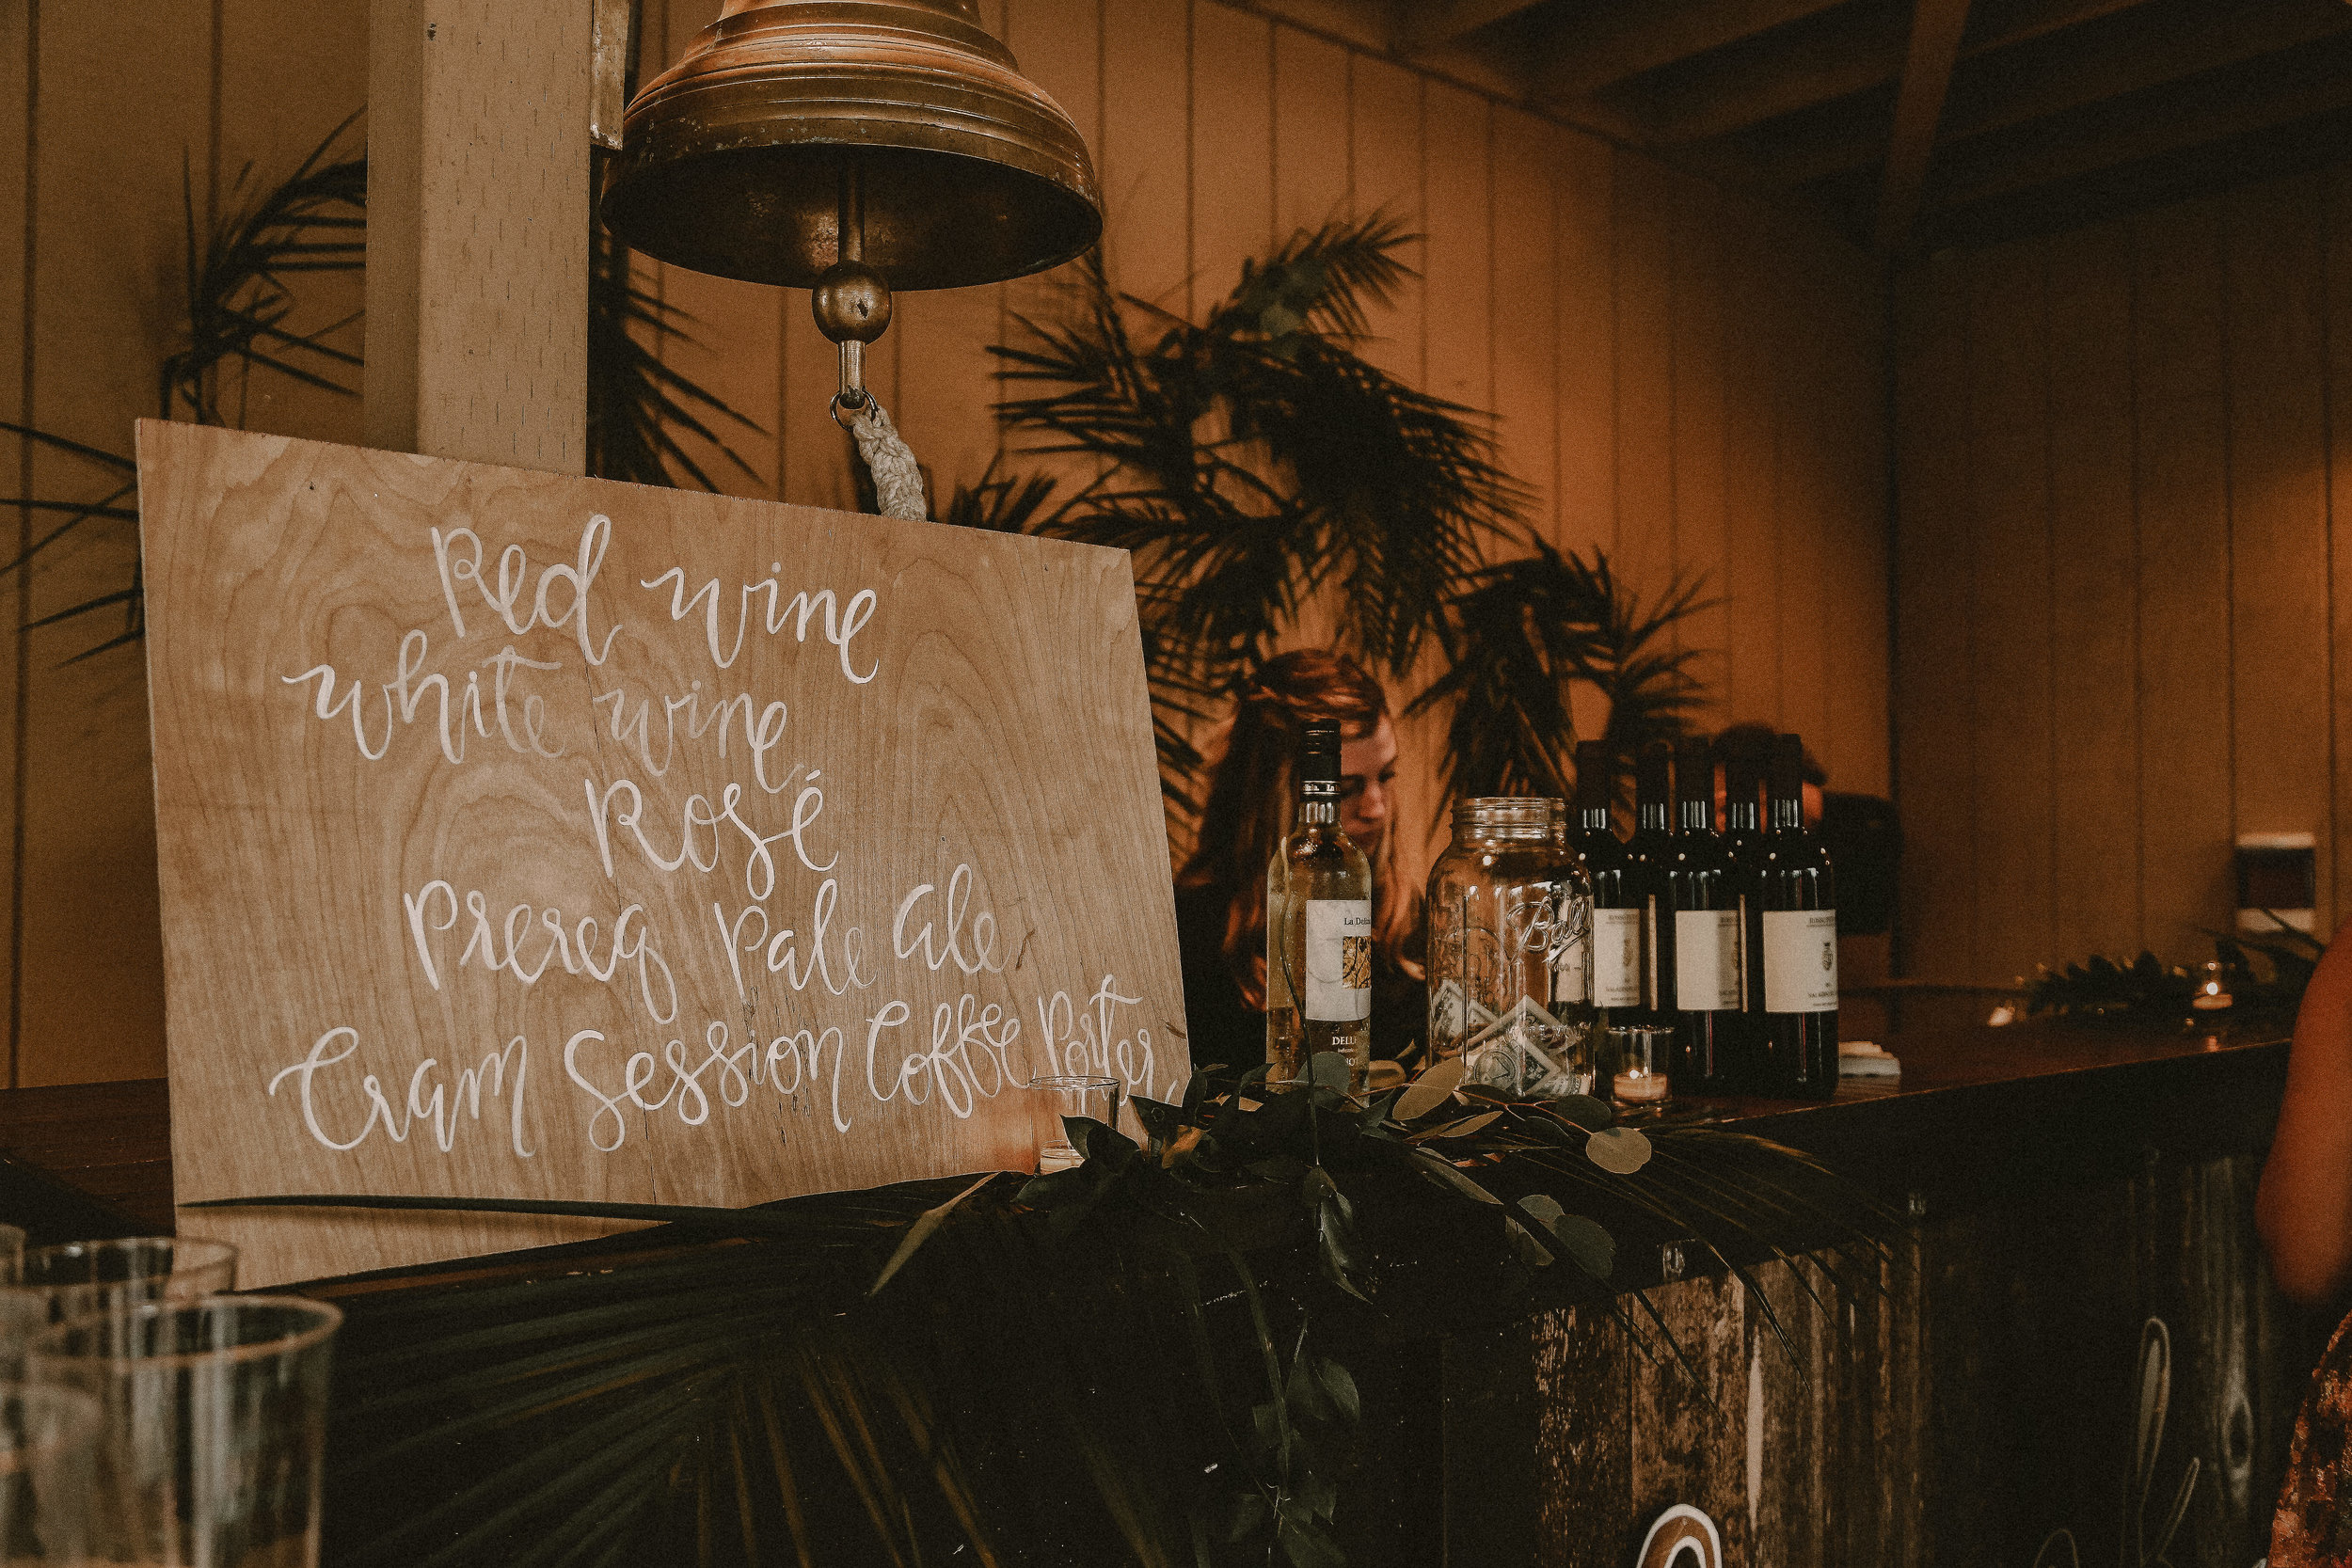 Red wine
white wine
Rosé
Prereq Pale Ale
Cram Session Coffee Porter
La Delizia
Ball